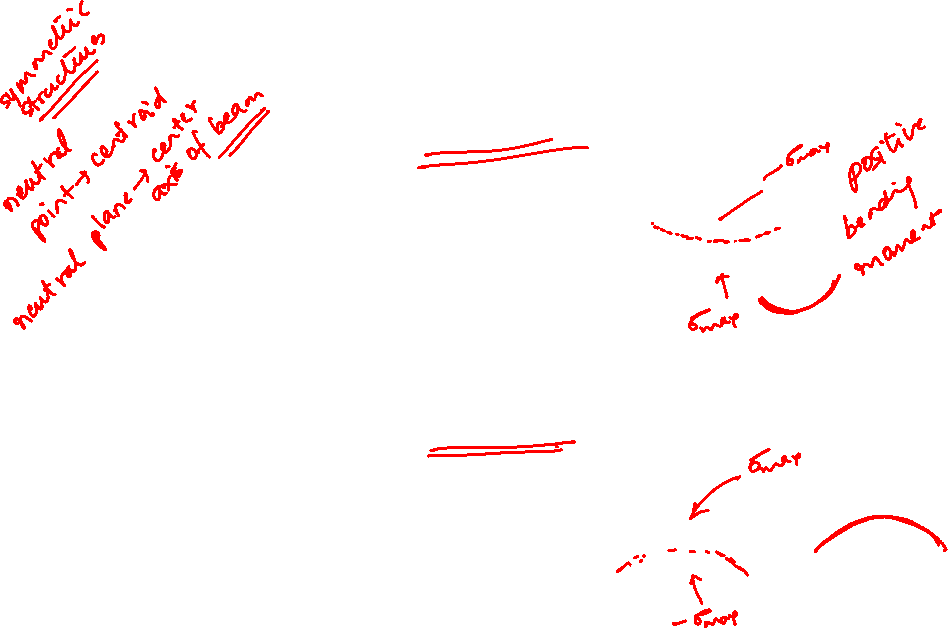 symmetric
structures
neutral
point → centroid
neutral plane → center
axis of beam
σmax
positive
bending
moment
σmax
σmax
-σmax